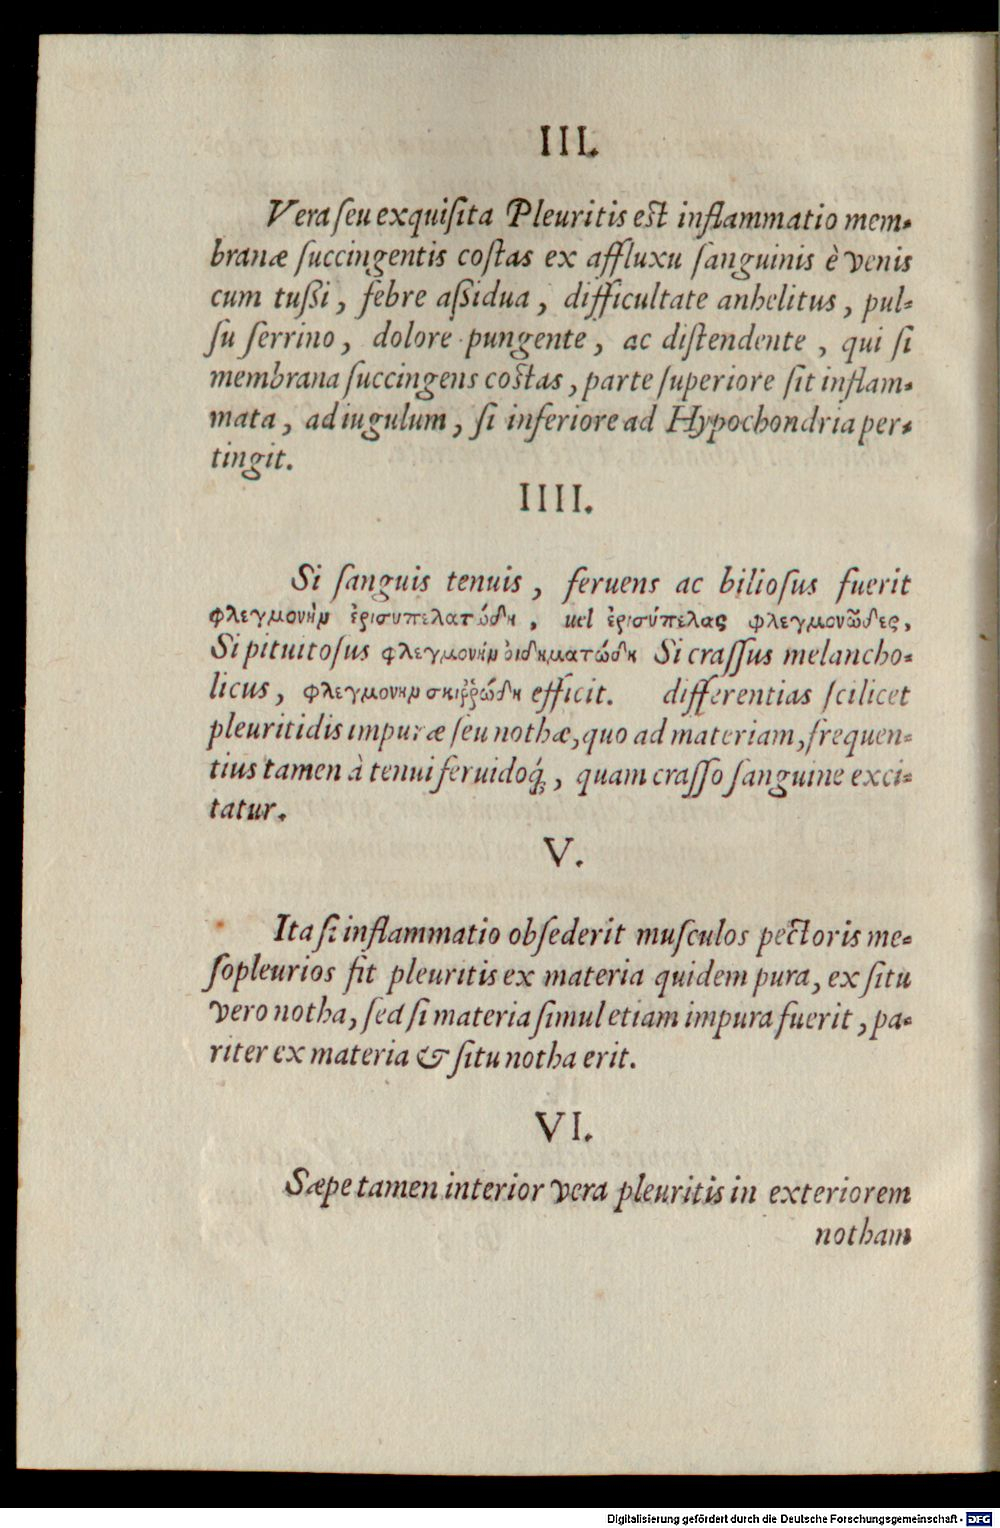 III.
Vera ſeu exquiſita Pleuritis eſt inflammatio mem-
branæ ſuccingentis coſtas ex affluxu ſanguinis è venis
cum tußi, febre aßidua, difficultate anhelitus, pul-
ſu ſerrino, dolore pungente, ac diſtendente, qui ſi
membrana ſuccingens coſtas, parte ſuperiore ſit inflam-
mata, ad iugulum, ſi inferiore ad Hypochondria per-
tingit.
IIII.
Si ſanguis tenuis, feruens ac bilioſus fuerit
φλεγμονὴν ἐρισυπελατώδη, uel ἐρισύπελας φλεγμονῶδες,
Si pituitoſus φλεγμονὴν ὀιδηματώδη Si craſſus melancho-
licus, φλεγμονην σκιῤῥώδη efficit. differentias ſcilicet
pleuritidis impuræ ſeu nothæ, quo ad materiam, frequen-
tius tamen à tenui feruidoq́;, quam craſſo ſanguine exci-
tatur.
V.
Ita ſi inflammatio obſederit muſculos pectoris me-
ſopleurios fit pleuritis ex materia quidem pura, ex ſitu
vero notha, ſed ſi materia ſimul etiam impura fuerit, pa-
riter ex materia & ſitu notha erit.
VI.
Sæpe tamen interior vera pleuritis in exteriorem
notham
Digitalisierung gefördert durch die Deutsche Forschungsgemeinschaft - DFG